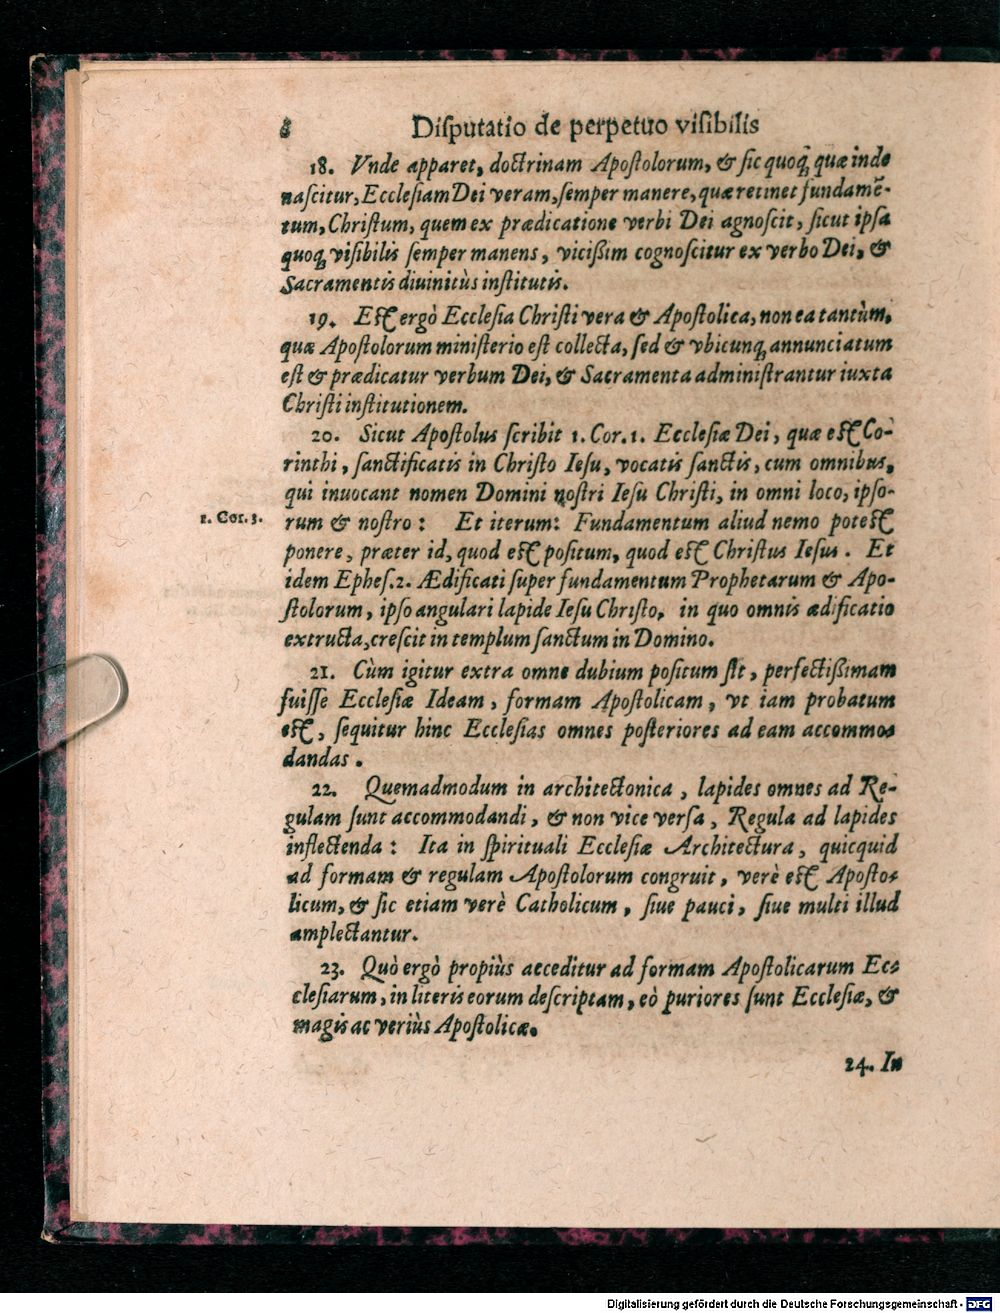 8 Diſputatio de perpetuo viſibilis
18. Vnde apparet, doctrinam Apoſtolorum, & ſic quoq́; quæ inde
naſcitur, Eccleſiam Dei veram, ſemper manere, quæ retinet fundamē-
tum, Chriſtum, quem ex prædicatione verbi Dei agnoſcit, ſicut ipſa
quoq; viſibilis ſemper manens, viciſſim cognoſcitur ex verbo Dei, &
Sacramentis diuinitùs inſtitutis.
19. Eſt ergò Eccleſia Chriſti vera & Apoſtolica, non ea tantùm,
quæ Apoſtolorum miniſterio eſt collecta, ſed & vbicunq; annunciatum
eſt & prædicatur verbum Dei, & Sacramenta adminiſtrantur iuxta
Chriſti inſtitutionem.
20. Sicut Apoſtolus ſcribit 1. Cor. 1. Eccleſiæ Dei, quæ eſt Co-
rinthi, ſanctificatis in Chriſto Ieſu, vocatis ſanctis, cum omnibus,
qui inuocant nomen Domini noſtri Ieſu Chriſti, in omni loco, ipſo-
1. Cor. 3.
rum & noſtro: Et iterum: Fundamentum aliud nemo poteſt
ponere, præter id, quod eſt poſitum, quod eſt Chriſtus Ieſus. Et
idem Epheſ. 2. Ædificati ſuper fundamentum Prophetarum & Apo-
ſtolorum, ipſo angulari lapide Ieſu Chriſto, in quo omnis ædificatio
extructa, creſcit in templum ſanctum in Domino.
21. Cùm igitur extra omne dubium poſitum ſit, perfectiſſimam
fuiſſe Eccleſiæ Ideam, formam Apoſtolicam, vt iam probatum
eſt, ſequitur hinc Eccleſias omnes poſteriores ad eam accommo-
dandas.
22. Quemadmodum in architectonica, lapides omnes ad Re-
gulam ſunt accommodandi, & non vice verſa, Regula ad lapides
inflectenda: Ita in ſpirituali Eccleſiæ Architectura, quicquid
ad formam & regulam Apoſtolorum congruit, verè eſt Apoſto-
licum, & ſic etiam verè Catholicum, ſiue pauci, ſiue multi illud
amplectantur.
23. Quò ergò propiùs acceditur ad formam Apoſtolicarum Ec-
cleſiarum, in literis eorum deſcriptam, eò puriores ſunt Eccleſiæ, &
magis ac veriùs Apoſtolicæ.
24. In
Digitalisierung gefördert durch die Deutsche Forschungsgemeinschaft - DFG